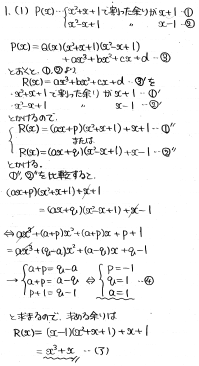 1. (1) P(x)…{x²+x+1で割った余りがx+1…①
x²-x+1 〃 x-1…②
P(x)=Q(x)(x²+x+1)(x²-x+1)
+ax³+bx²+cx+d…③
とおくと、①、②より
R(x)=ax³+bx²+cx+d…③'を
・x²+x+1で割った余り x+1…①'
・x²-x+1 〃 x-1…②'
とかけるので、
{R(x)=(ax+p)(x²+x+1)+x+1…①''
または
R(x)=(ax+q)(x²-x+1)+x-1…②''
とかける。
①'',②''を比較すると、
(ax+p)(x²+x+1)+x+1
=(ax+q)(x²-x+1)+x-1
⇔ax³+(a+p)x²+(a+p)x+p+1
=ax³+(q-a)x²+(a-q)x+q-1
→{a+p=q-a
a+p=a-q
p+1=q-1
⇔{p=-1
q=1 …④
a=1
と求まるので、求める余りは
R(x)=(x-1)(x²+x+1)+x+1
=x³+x …(了)